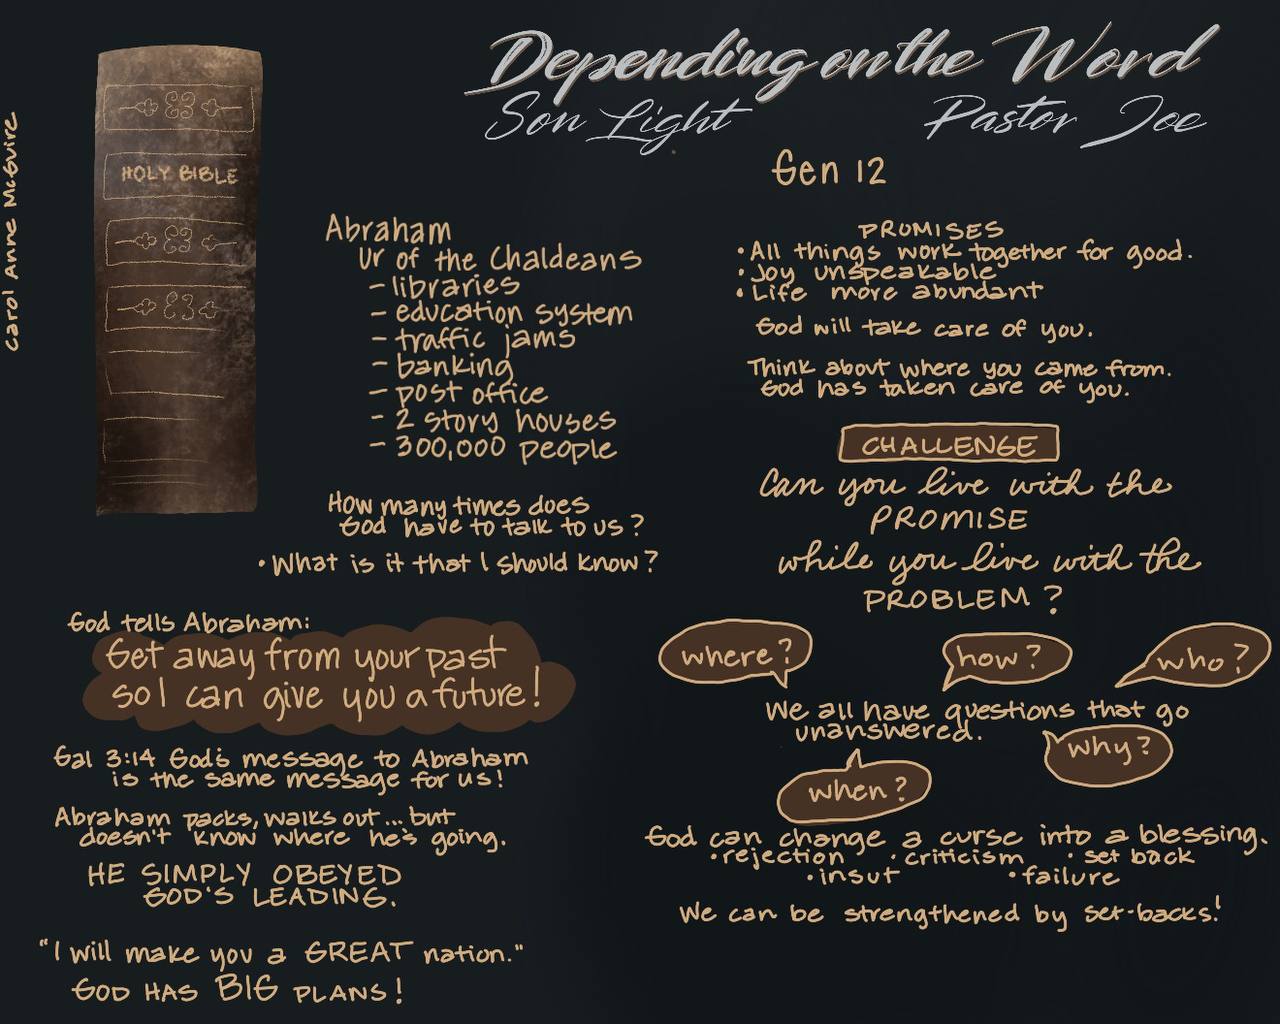 Depending on the Word
Son Light Pastor Joe
Gen 12
Carol Anne McGuire
HOLY BIBLE
Abraham
Ur of the Chaldeans
- libraries
- education system
- traffic jams
- banking
- post office
- 2 story houses
- 300,000 people
How many times does
God have to talk to us?
• What is it that I should know?
God tells Abraham:
Get away from your past
so I can give you a future!
Gal 3:14 God's message to Abraham
is the same message for us!
Abraham packs, walks out... but
doesn't know where he's going.
HE SIMPLY OBEYED
GOD'S LEADING.
"I will make you a GREAT nation."
GOD HAS BIG PLANS!
PROMISES
• All things work together for good.
• Joy unspeakable
• Life more abundant
God will take care of you.
Think about where you came from.
God has taken care of you.
CHALLENGE
Can you live with the
PROMISE
while you live with the
PROBLEM?
where? how? who?
We all have questions that go
unanswered.
why?
when?
God can change a curse into a blessing.
• rejection • criticism • set back
• insut • failure
We can be strengthened by set-backs!